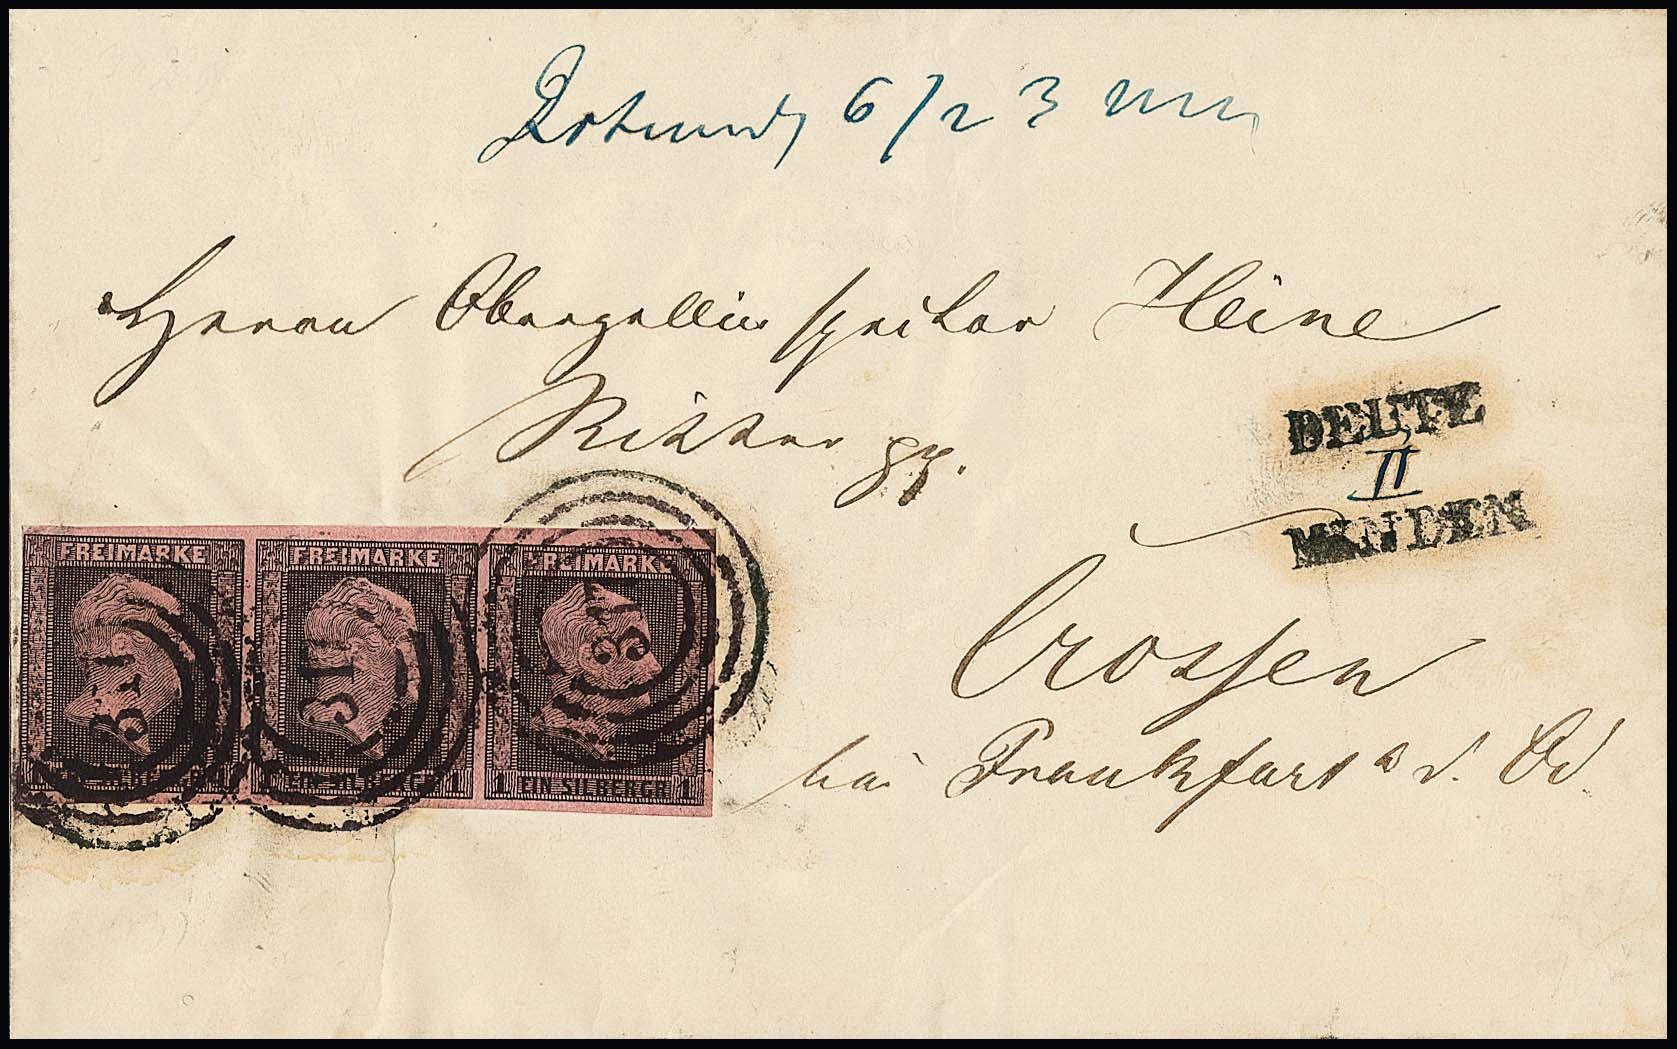 Dortmund 6/2 3
Herrn Oberzollinspektor Heine
Ritter pp.
DEUTZ
II
MINDEN
Crossen
bei Frankfurt a d. Od
FREIMARKE
FREIMARKE
FREIMARKE
311
311
31
1 EIN SILBERGR 1
EIN SILBERGR 1
1 EIN SILBERGR 1